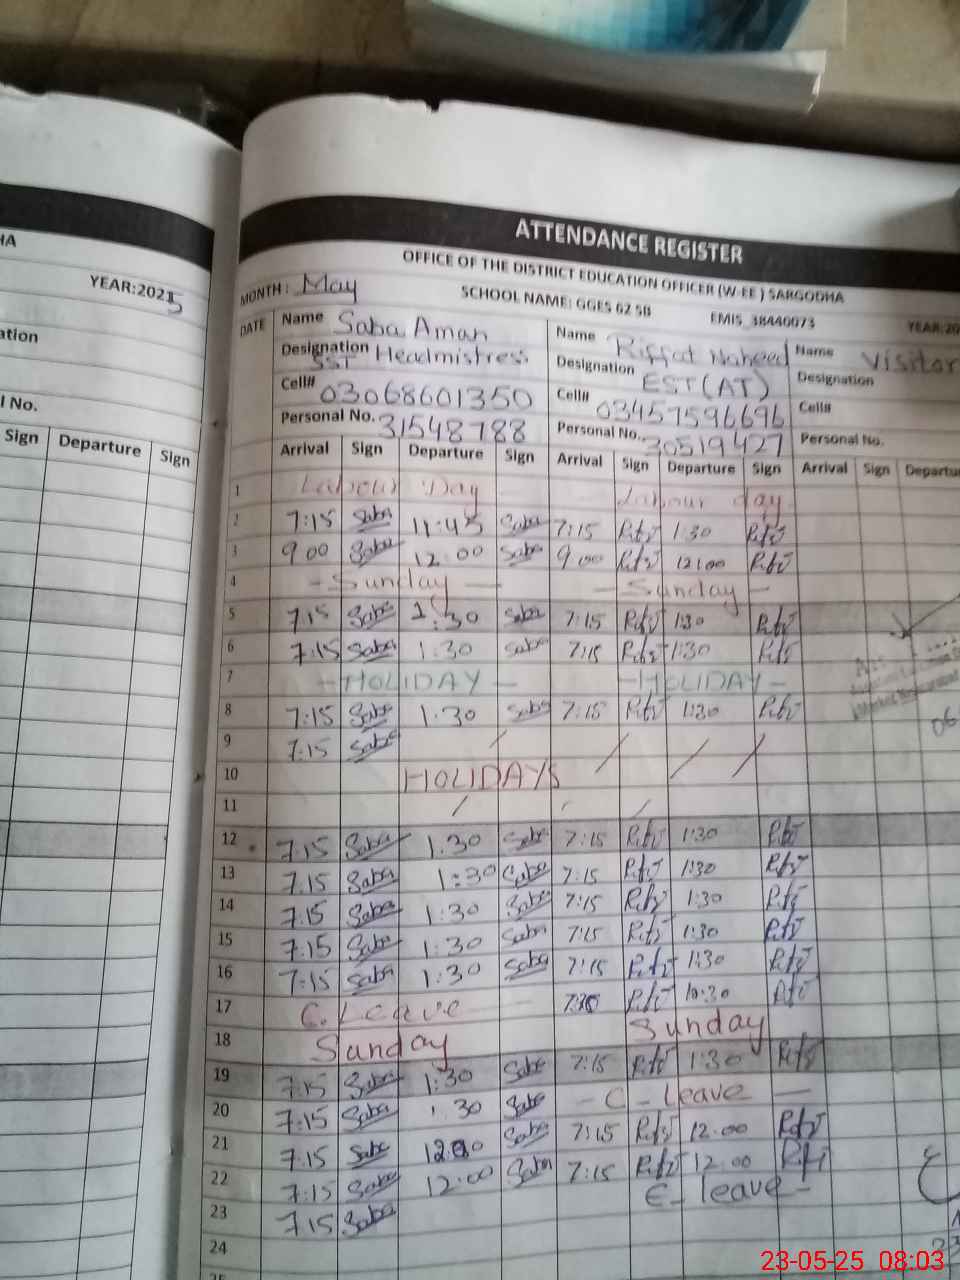 HA
YEAR:2025
ation
l No.
Sign Departure Sign
ATTENDANCE REGISTER
OFFICE OF THE DISTRICT EDUCATION OFFICER (W-EE ) SARGODHA
MONTH : May SCHOOL NAME: GGES 62 SB EMIS_38440073 YEAR:20
DATE Name Saba Aman Name Riffat Naheed Name Visitor
Designation SST Headmistress Designation EST (AT) Designation
Cell# 03068601350 Cell# 03457596696 Cell#
Personal No. 31548788 Personal No. 30519427 Personal No.
Arrival Sign Departure Sign Arrival Sign Departure Sign Arrival Sign Departu
1 Labour Day Labour day
2 7:15 Saba 11:45 Saba 7:15 1:30
3 9 00 Saba 12:00 Saba 9 00 12:00
4 - Sunday - - Sunday -
5 7:15 Saba 1:30 Saba 7:15 1:30
6 7:15 Saba 1:30 Saba 7:15 1:30
7 - HOLIDAY - - HOLIDAY -
8 7:15 Saba 1:30 Saba 7:15 1:30
9 7:15 Saba / / / /
10 HOLIDAYS
11 / / /
12 7:15 Saba 1:30 Saba 7:15 1:30
13 7:15 Saba 1:30 Saba 7:15 1:30
14 7:15 Saba 1:30 Saba 7:15 1:30
15 7:15 Saba 1:30 Saba 7:15 1:30
16 7:15 Saba 1:30 Saba 7:15 1:30
17 C. Leave - 10:30
18 Sunday Sunday
19 7:15 Saba 1:30 Saba 7:15 1:30
20 7:15 Saba 1:30 Saba - C - Leave -
21 7:15 Saba 12:00 Saba 7:15 12:00
22 7:15 Saba 12:00 Saba 7:15 12:00
23 7:15 Saba C - leave -
24
23-05-25 08:03